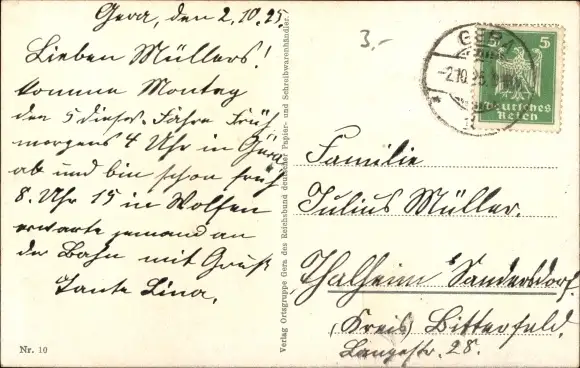 Gera, den 2.10.25.
Lieben Müllers!
komme Montag
den 5 dieses Jahre Früh
morgens 4 Uhr in Gera
ab und bin schon früh
8. Uhr 15 in Wolfen
erwarte jemand an
der Bahn mit Gruß
Tante Lina.
Nr. 10
Verlag Ortsgruppe Gera des Reichsbund deutscher Papier- und Schreibwarenhändler.
3,-
GERA
-2.10.25.
5
Deutsches
Reich
Familie
Julius Müller.
Thalheim Sandersdorf
(Kreis) Bitterfeld.
Langestr. 28.